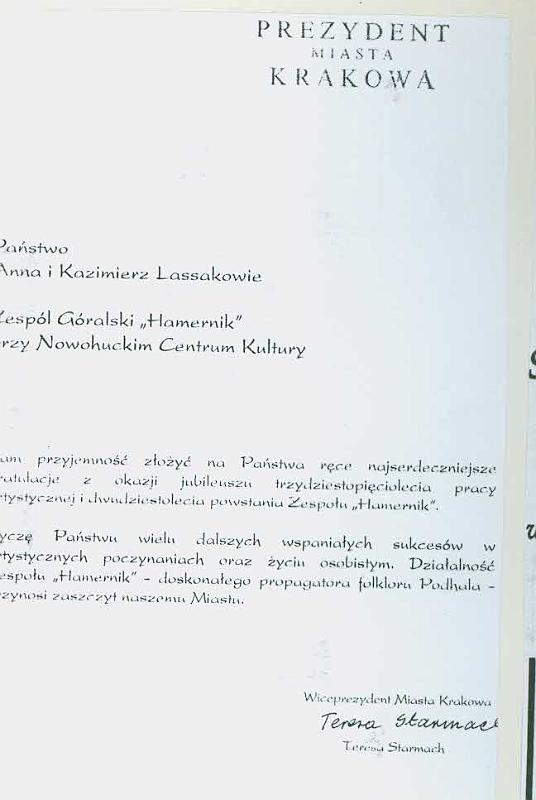 PREZYDENT
MIASTA
KRAKOWA
Państwo
Anna i Kazimierz Lassakowie
Zespół Góralski „Hamernik”
przy Nowohuckim Centrum Kultury
am przyjemność złożyć na Państwa ręce najserdeczniejsze
ratulacje z okazji jubileuszu trzydziestopięciolecia pracy
rtystycznej i dwudziestolecia powstania Zespołu „Hamernik”.
yczę Państwu wielu dalszych wspaniałych sukcesów w
rtystycznych poczynaniach oraz życiu osobistym. Działalność
espołu „Hamernik” - doskonałego propagatora folkloru Podhala -
zynosi zaszczyt naszemu Miastu.
Wiceprezydent Miasta Krakowa
Teresa Starmach
Teresa Starmach